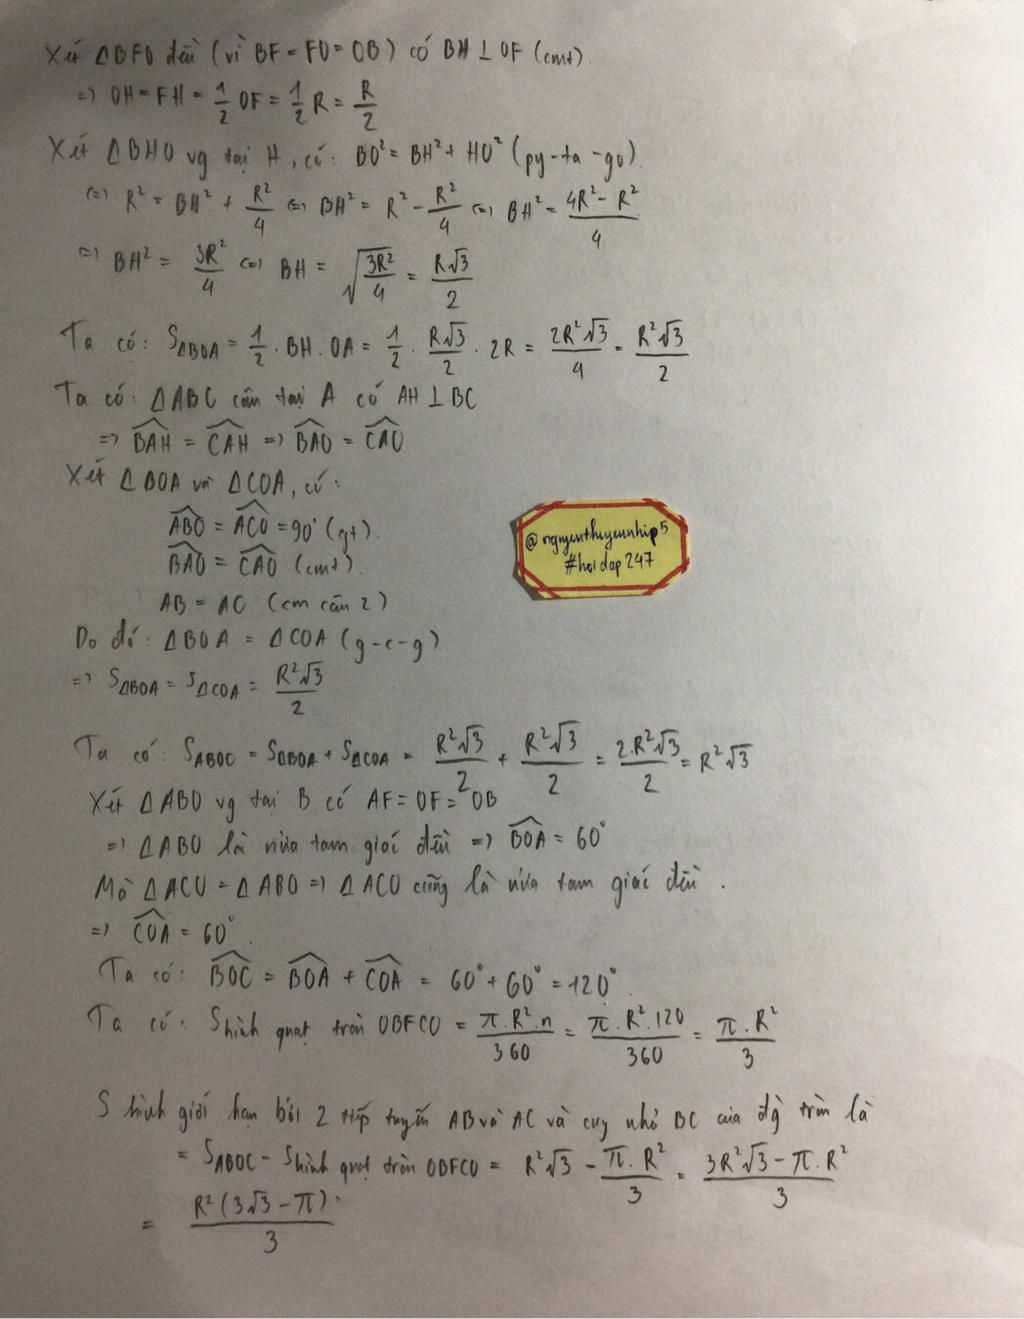 Xét ΔBFO đều (vì BF = FO = OB) có BH ⊥ OF (cmt).
=> OH = FH = 1/2 OF = 1/2 R = R/2
Xét ΔBHO vg tại H, có: BO² = BH² + HO² (py-ta-go).
<=> R² = BH² + R²/4 <=> BH² = R² - R²/4 <=> BH² = (4R² - R²)/4
<=> BH² = 3R²/4 <=> BH = √(3R²/4) = R√3/2
Ta có: SΔBOA = 1/2 . BH . OA = 1/2 . R√3/2 . 2R = 2R²√3/4 = R²√3/2
Ta có: ΔABC cân tại A có AH ⊥ BC
=> \widehat{BAH} = \widehat{CAH} => \widehat{BAO} = \widehat{CAO}
Xét ΔBOA và ΔCOA, có:
\widehat{ABO} = \widehat{ACO} = 90° (gt).
\widehat{BAO} = \widehat{CAO} (cmt).
AB = AC (cm câu 2)
@nguyenthuyeunhip5
#hoidap247
Do đó: ΔBOA = ΔCOA (g-c-g)
=> SΔBOA = SΔCOA = R²√3/2
Ta có: SABOC = SΔBOA + SΔCOA = R²√3/2 + R²√3/2 = 2.R²√3/2 = R²√3
Xét ΔABO vg tại B có AF = OF = OB
=> ΔABO là nửa tam giác đều => \widehat{BOA} = 60°
Mà ΔACO = ΔABO => ΔACO cũng là nửa tam giác đều.
=> \widehat{COA} = 60°.
Ta có: \widehat{BOC} = \widehat{BOA} + \widehat{COA} = 60° + 60° = 120°.
Ta có: S hình quạt tròn OBFCO = π.R².n/360 = π.R².120/360 = π.R²/3
S hình giới hạn bởi 2 tiếp tuyến AB và AC và cung nhỏ BC của đg tròn là
= SABOC - S hình quạt tròn OBFCO = R²√3 - π.R²/3 = (3R²√3 - π.R²)/3
= R²(3√3 - π)/3